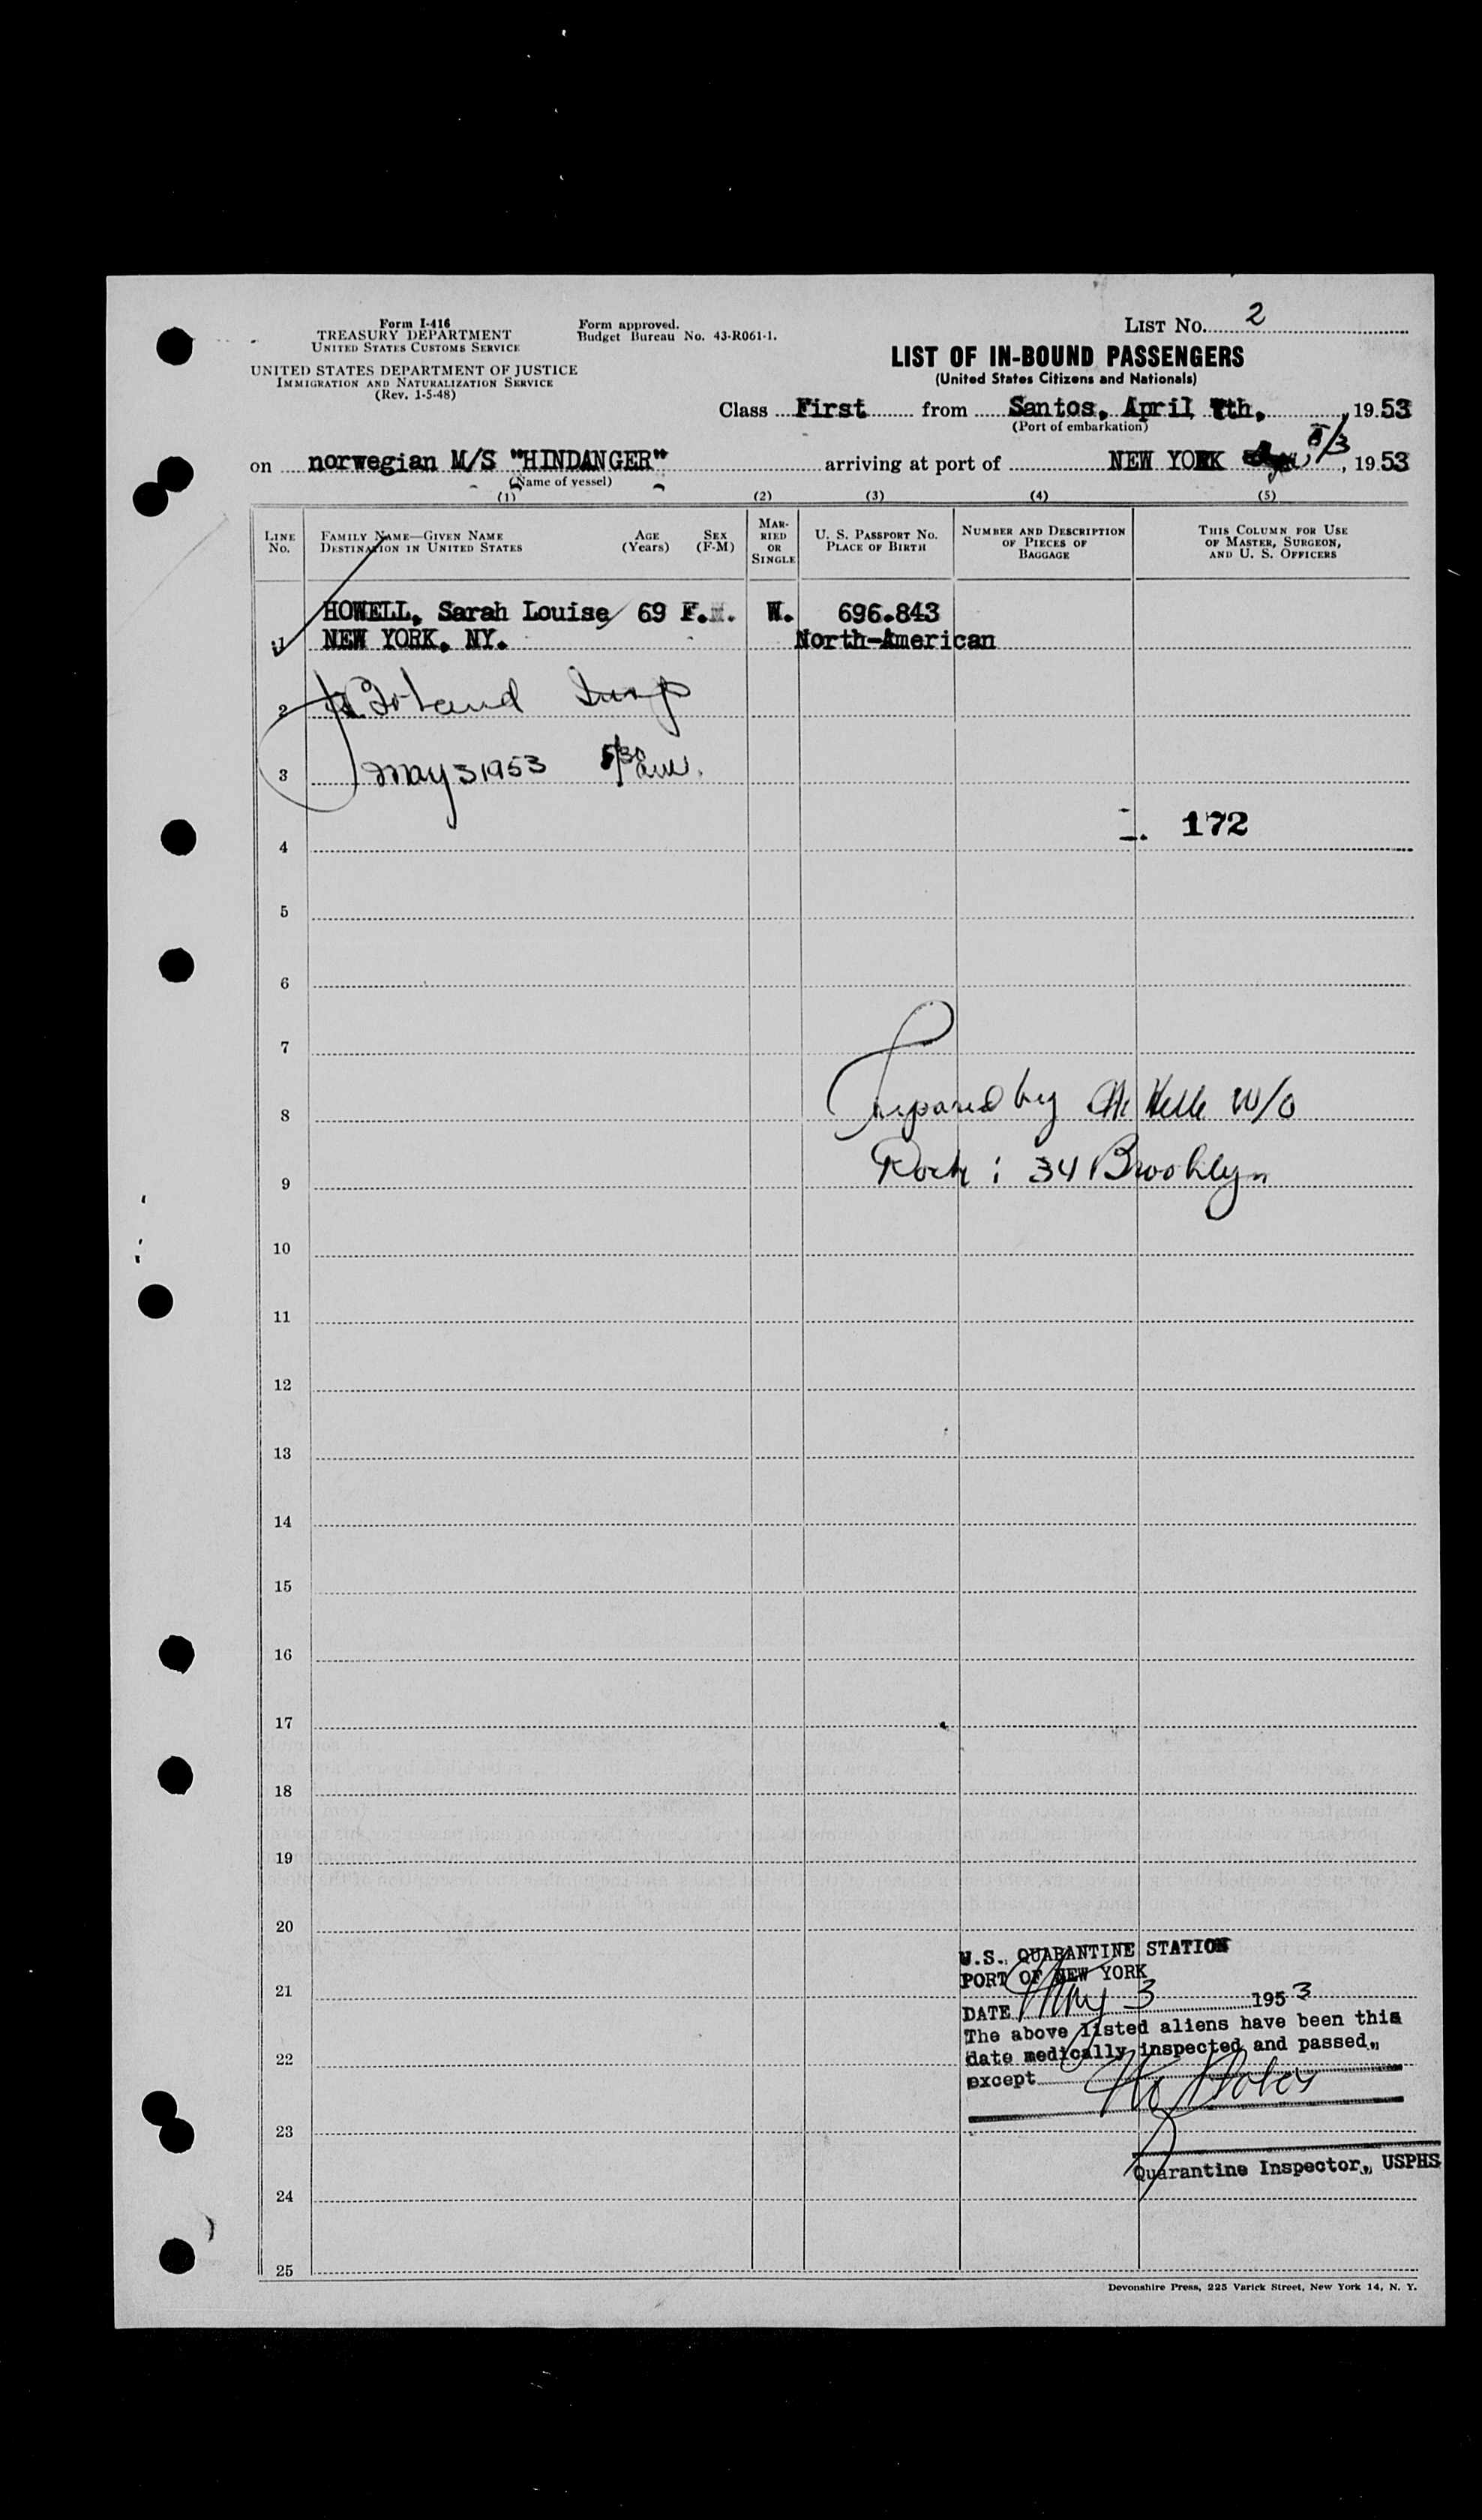 Form I-416
TREASURY DEPARTMENT
UNITED STATES CUSTOMS SERVICE
UNITED STATES DEPARTMENT OF JUSTICE
IMMIGRATION AND NATURALIZATION SERVICE
(Rev. 1-5-48)
Form approved.
Budget Bureau No. 43-R061-1.
LIST No. 2
LIST OF IN-BOUND PASSENGERS
(United States Citizens and Nationals)
Class First from Santos, April 7th, , 1953
(Port of embarkation)
on norwegian M/S "HINDANGER" arriving at port of NEW YORK 5/3, 1953
(Name of vessel)
(1) (2) (3) (4) (5)
LINE No. FAMILY NAME—GIVEN NAME DESTINATION IN UNITED STATES AGE (Years) SEX (F-M) MARRIED OR SINGLE U. S. PASSPORT NO. PLACE OF BIRTH NUMBER AND DESCRIPTION OF PIECES OF BAGGAGE THIS COLUMN FOR USE OF MASTER, SURGEON, AND U. S. OFFICERS
HOWELL, Sarah Louise 69 F. W. 696.843
1 NEW YORK, NY. North-American
2
3 May 3 1953
172
4
5
6
7
8 Prepared by W/O
9 34 Brooklyn
10
11
12
13
14
15
16
17
18
19
20
U.S. QUARANTINE STATION
PORT OF NEW YORK
21
DATE May 3 1953
The above listed aliens have been this
22 date medically inspected and passed,
except
23
Quarantine Inspector, USPHS
24
25
Devonshire Press, 225 Varick Street, New York 14, N. Y.